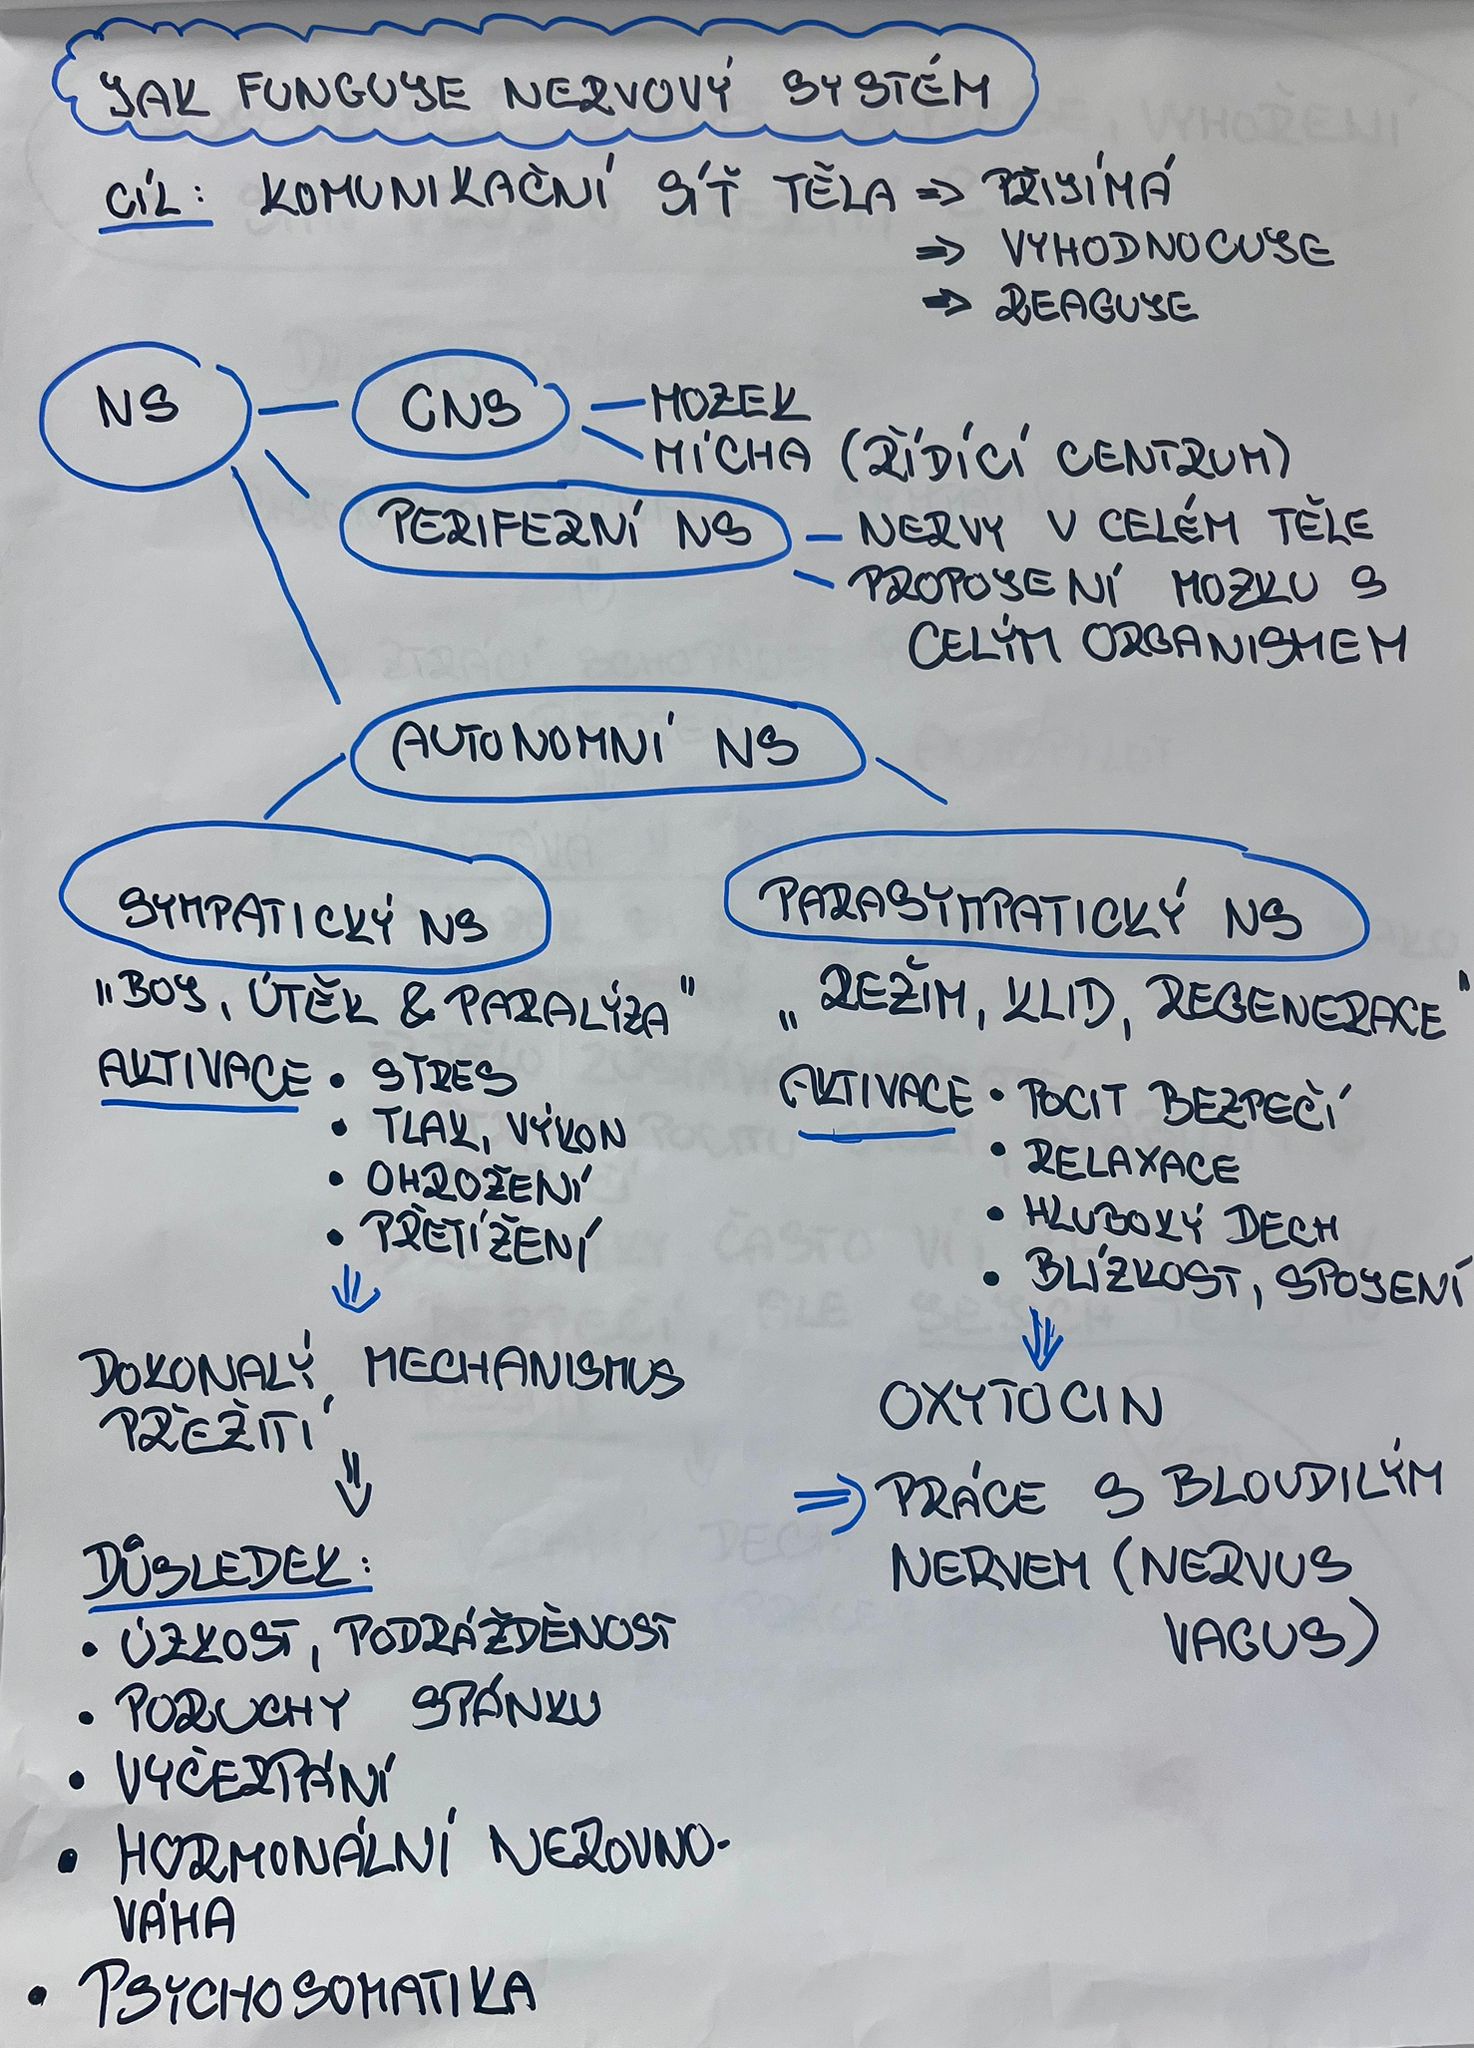 JAK FUNGUJE NERVOVÝ SYSTÉM
CÍL: KOMUNIKAČNÍ SÍŤ TĚLA ⇒ PŘIJÍMÁ
⇒ VYHODNOCUJE
⇒ REAGUJE
NS — CNS — MOZEK
MÍCHA (ŘÍDÍCÍ CENTRUM)
PERIFERNÍ NS — NERVY V CELÉM TĚLE
PROPOJENÍ MOZKU S
CELÝM ORGANISMEM
AUTONOMNÍ NS
SYMPATICKÝ NS
„BOJ, ÚTĚK & PARALÝZA"
AKTIVACE • STRES
• TLAK, VÝKON
• OHROŽENÍ
• PŘETÍŽENÍ
⇓
DOKONALÝ MECHANISMUS
PŘEŽITÍ
⇓
DŮSLEDEK:
• ÚZKOST, PODRÁŽDĚNOST
• PORUCHY SPÁNKU
• VYČERPÁNÍ
• HORMONÁLNÍ NEROVNO-
VÁHA
• PSYCHOSOMATIKA
PARASYMPATICKÝ NS
„REŽIM, KLID, REGENERACE"
AKTIVACE • POCIT BEZPEČÍ
• RELAXACE
• HLUBOKÝ DECH
• BLÍZKOST, SPOJENÍ
⇓
OXYTOCIN
⇒ PRÁCE S BLOUDILÝM
NERVEM (NERVUS
VAGUS)